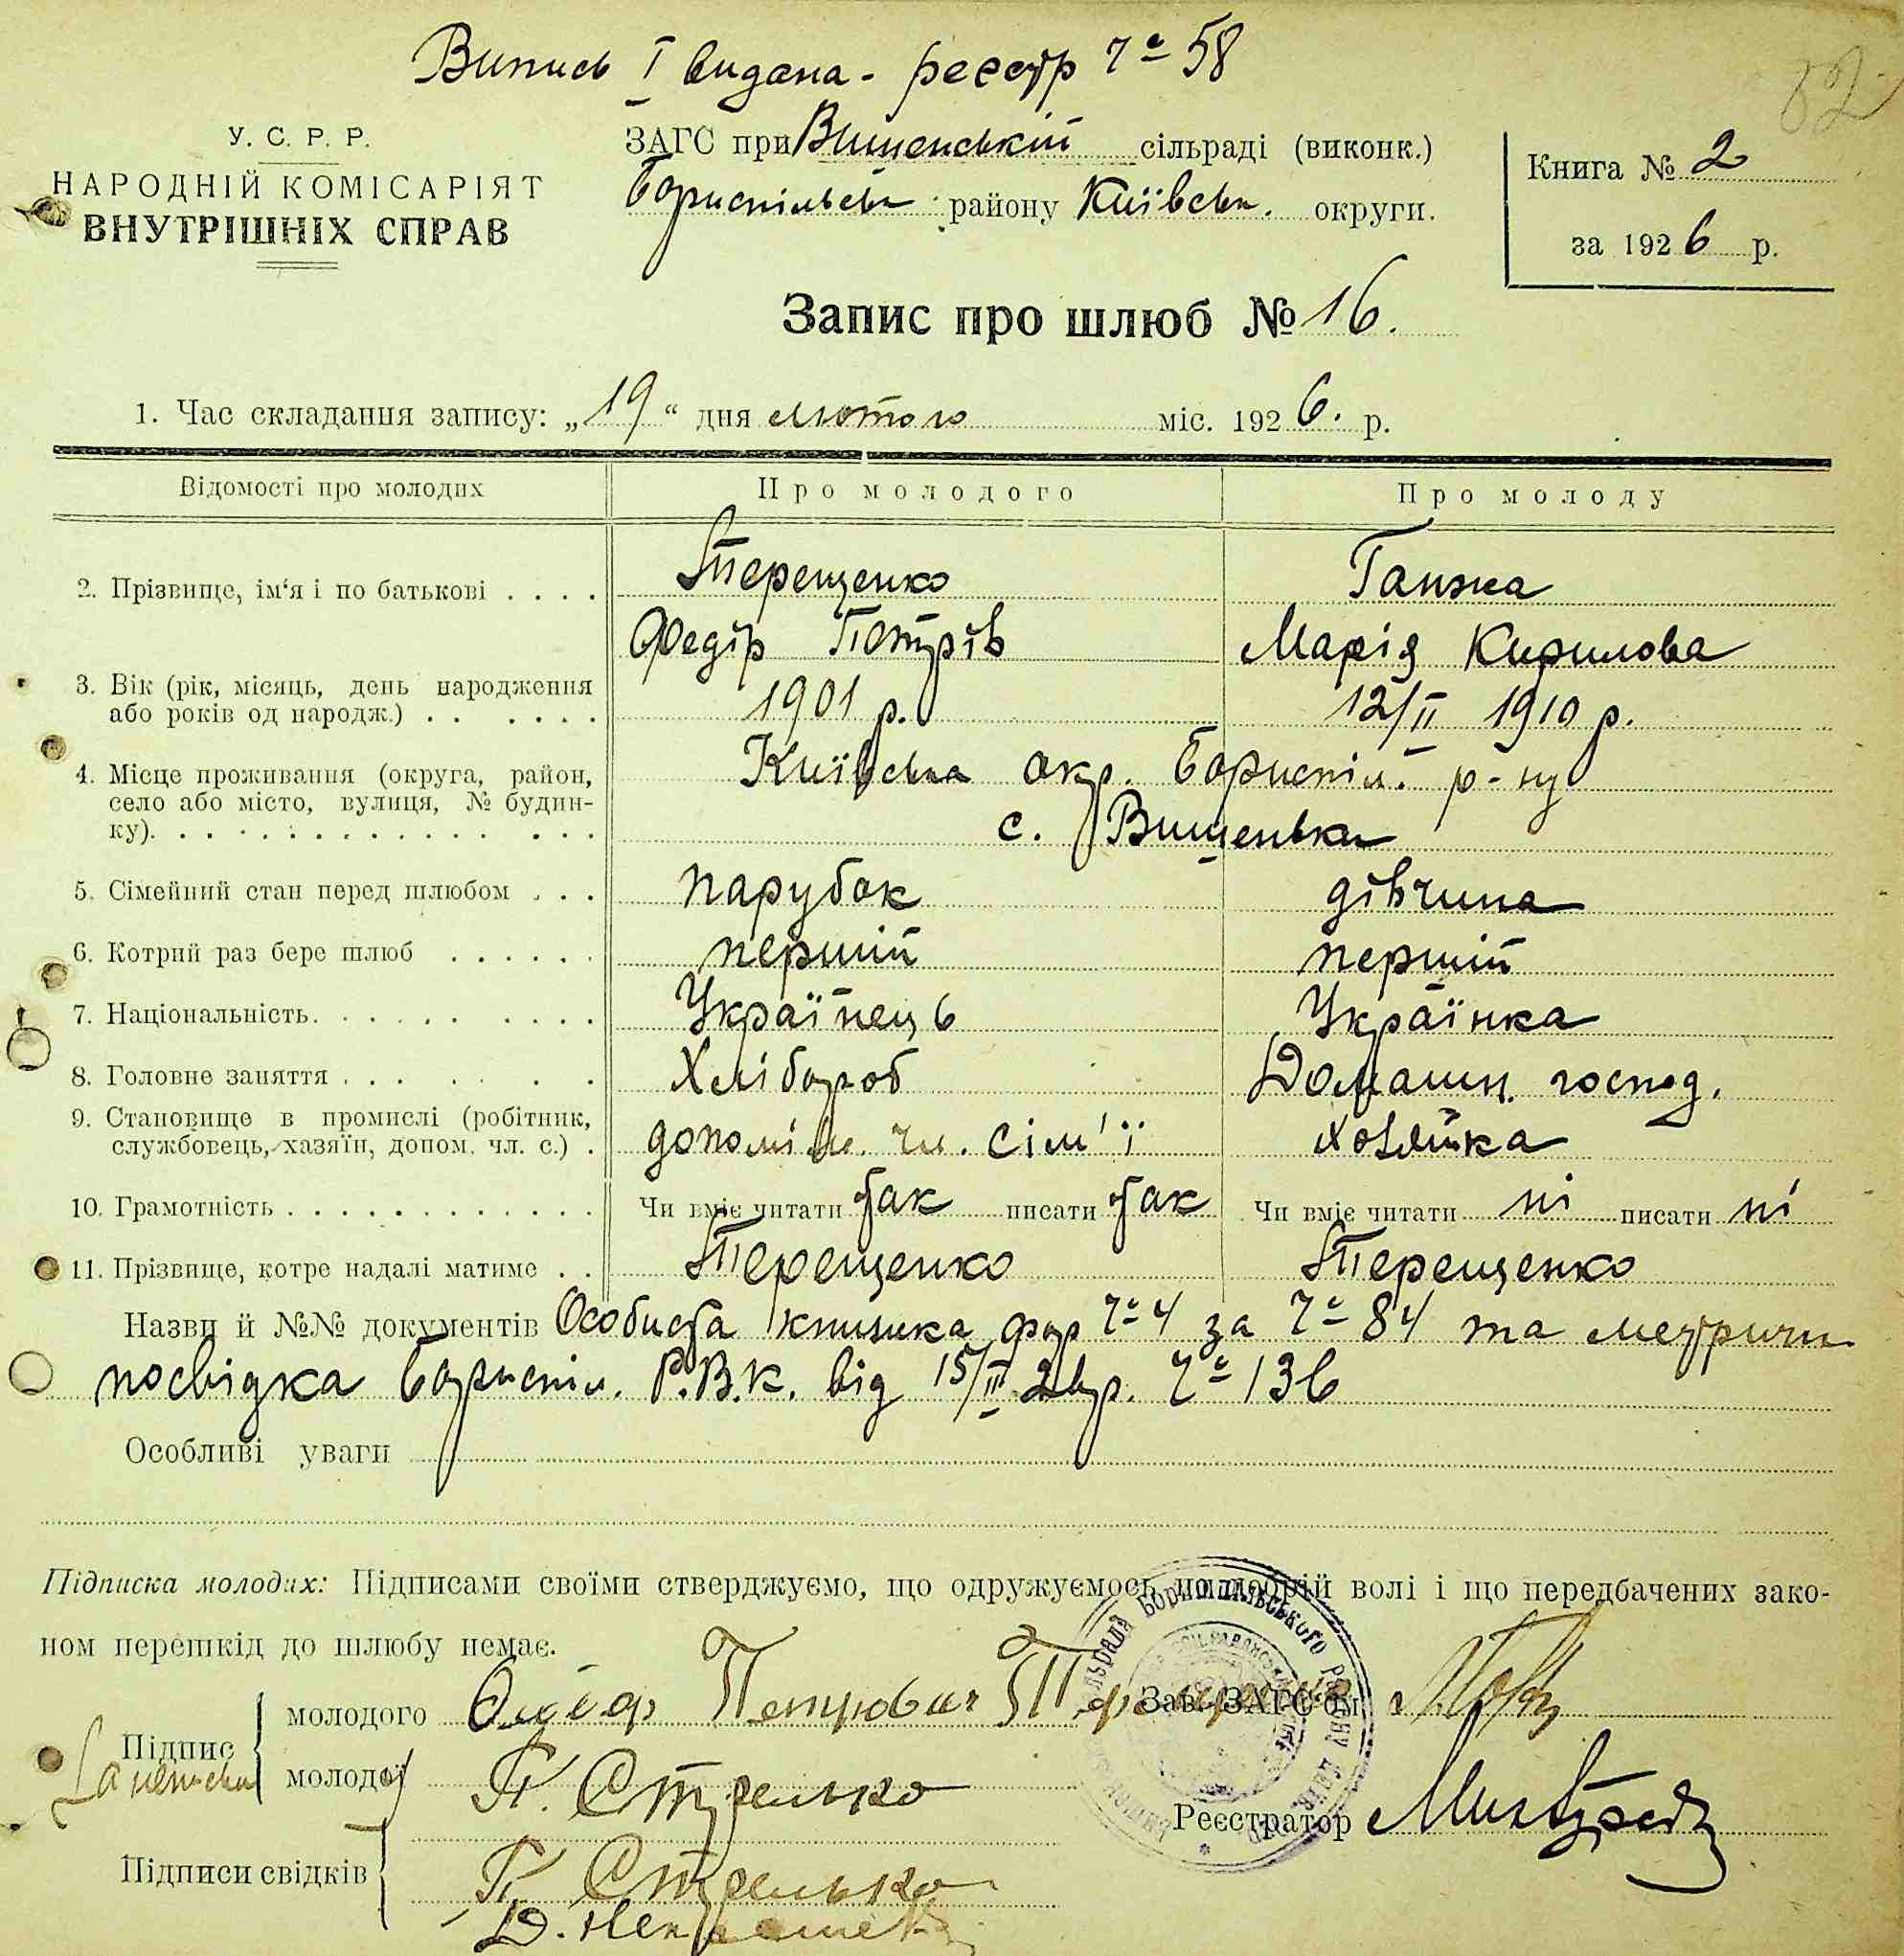 Випись І видана - реєстр Ч° 58
82
У. С. Р. Р.
НАРОДНІЙ КОМІСАРІЯТ
ВНУТРІШНІХ СПРАВ
ЗАГС при Вишенській сільраді (виконк.)
Бориспільськ району Київськ. округи.
Книга № 2
за 1926 р.
Запис про шлюб № 16.
1. Час складання запису: „19“ дня лютого міс. 1926. р.
Відомості про молодих
Про молодого
Про молоду
2. Прізвище, ім‘я і по батькові . . . .
Терещенко
Ганжа
Федір Петрів
Марія Кирилова
3. Вік (рік, місяць, день народження
або років од народж.) . . . . . .
1901 р.
12/ІІ 1910 р.
4. Місце проживання (округа, район,
село або місто, вулиця, № будин-
ку). . . . . . . . . . . . . . .
Київська окр. Бориспіл. р-ну
с. Вищеньки
5. Сімейний стан перед шлюбом . . .
парубок
дівчина
6. Котрий раз бере шлюб . . . . . .
першій
першій
7. Національність. . . . . . . . . .
Українець
Українка
8. Головне заняття . . . . . . .
Хлібороб
Домашн. господ.
9. Становище в промислі (робітник,
службовець, хазяїн, допом. чл. с.) .
допоміж. чл. сім'ї
хозяйка
10. Грамотність . . . . . . . . . . . . .
Чи вміє читати так писати так
Чи вміє читати ні писати ні
11. Прізвище, котре надалі матиме . .
Терещенко
Терещенко
Назви й №№ документів Особиста книжка фор Ч° 4 за Ч° 84 та метричн
посвідка Бориспіл. Р.В.К. від 15/ІІ 26р. Ч° 136
Особливі уваги
Підписка молодих: Підписами своїми стверджуємо, що одружуємось по добрій волі і що передбачених зако-
ном перешкід до шлюбу немає.
Підпис
молодого Петрович Терещенко
Зав. ЗАГС'ом
молодої П. Стрелько
Реєстратор
Підписи свідків
П. Стрелько
Д.